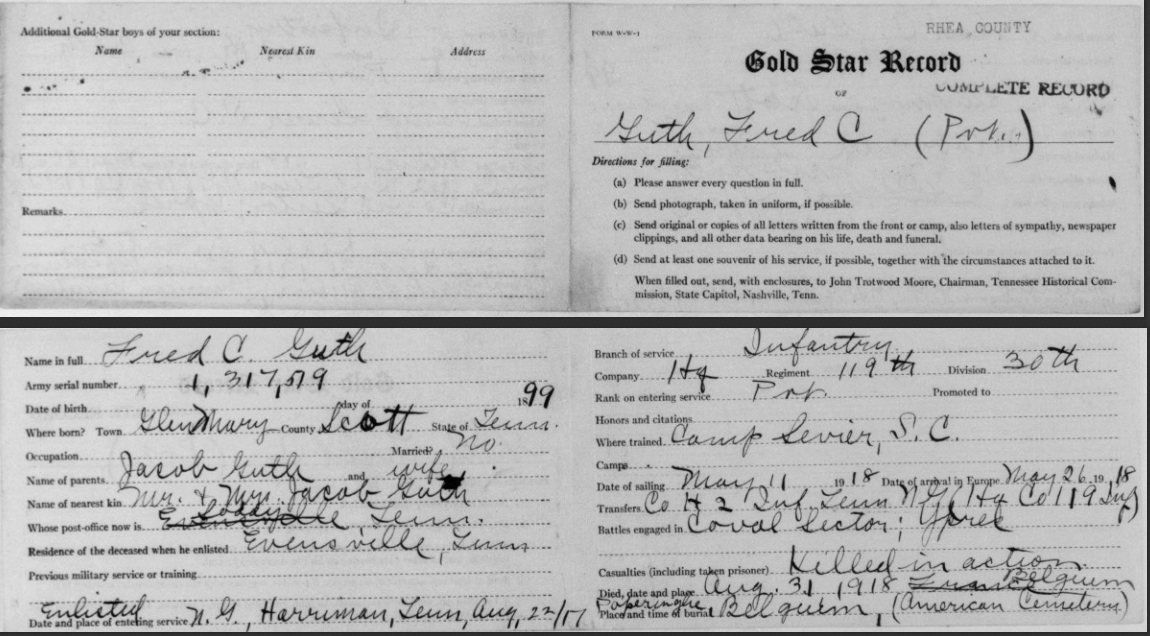 Additional Gold-Star boys of your section:
Name Nearest Kin Address
Remarks
FORM W-W-1
RHEA COUNTY
Gold Star Record
OF
COMPLETE RECORD
Guth, Fred C (Pvt.)
Directions for filling:
(a) Please answer every question in full.
(b) Send photograph, taken in uniform, if possible.
(c) Send original or copies of all letters written from the front or camp, also letters of sympathy, newspaper
clippings, and all other data bearing on his life, death and funeral.
(d) Send at least one souvenir of his service, if possible, together with the circumstances attached to it.
When filled out, send, with enclosures, to John Trotwood Moore, Chairman, Tennessee Historical Com-
mission, State Capitol, Nashville, Tenn.
Name in full Fred C. Guth
Army serial number 1,317,579
Date of birth day of 1899
Where born? Town Glen Mary County Scott State of Tenn.
Occupation Married? No.
Name of parents Jacob Guth and wife.
Name of nearest kin Mr. & Mrs. Jacob Guth
Whose post-office now is Evensville Soddy, Tenn.
Residence of the deceased when he enlisted Evensville, Tenn
Previous military service or training
Enlisted
Date and place of entering service N.G., Harriman, Tenn, Aug, 22/17
Branch of service Infantry
Company Hq Regiment 119th Division 30th
Rank on entering service Pvt. Promoted to
Honors and citations
Where trained Camp Sevier, S.C.
Camps
Date of sailing May 11 1918 Date of arrival in Europe May 26, 1918
Transfers Co H 2 Inf Tenn N.G. (Hq Co 119 Inf)
Battles engaged in Coval Sector; Ypres
Casualties (including taken prisoner) Killed in action
Died, date and place Aug. 31, 1918 France Belgium
Place and time of burial Poperinghe, Belguim, (American Cemetery)